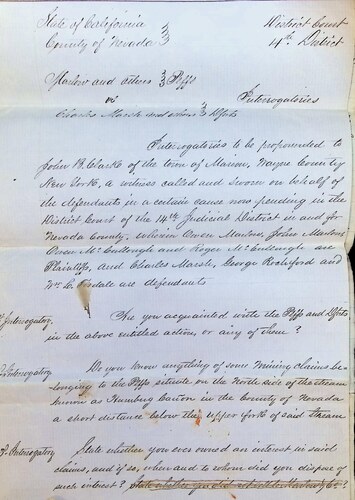 State of California } District Court
County of Nevada } 14th District
Marlow and others } Plffs
vs Interrogatories
Charles Marsh and others } Defts
Interrogatories to be propounded to
John R. Clark of the town of Marion, Wayne County
New York, a witness called and sworn on behalf of
the defendants in a certain cause now pending in the
District Court of the 14th Judicial District in and for
Nevada County; wherein Owen Marlow, John Marlow,
Owen McCullough and Roger McCullough are
Plaintiffs, and Charles Marsh, George Rochford and
Wm C. are defendants
Interrogatory Are you acquainted with the Plffs and Defts
in the above entitled action, or any of them?
Interrogatory Do you know anything of some mining claims be-
longing to the Plffs situate on the North side of the stream
known as Humbug Canon in the County of Nevada
a short distance below the upper fork of said stream
Interrogatory State whether you ever owned an interest in said
claims, and if so, when and to whom did you dispose of
such interest? State whether you did